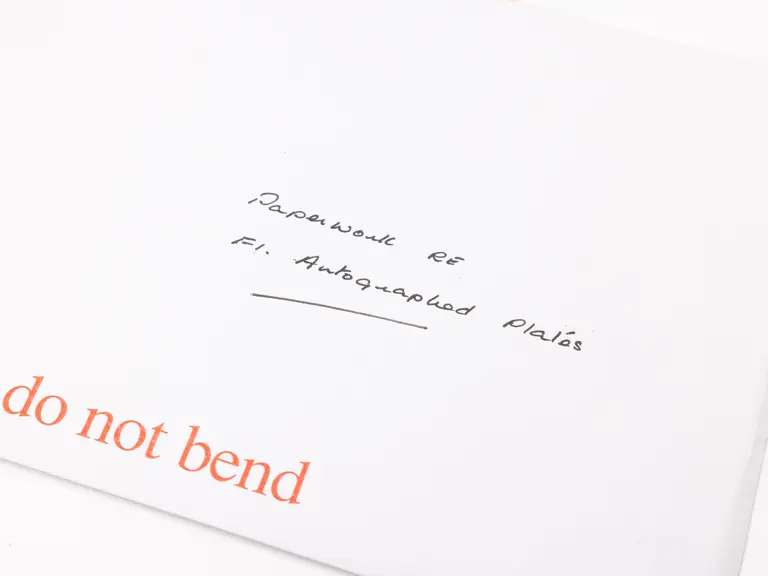 Paperwork RE
F1. Autographed Plates
do not bend